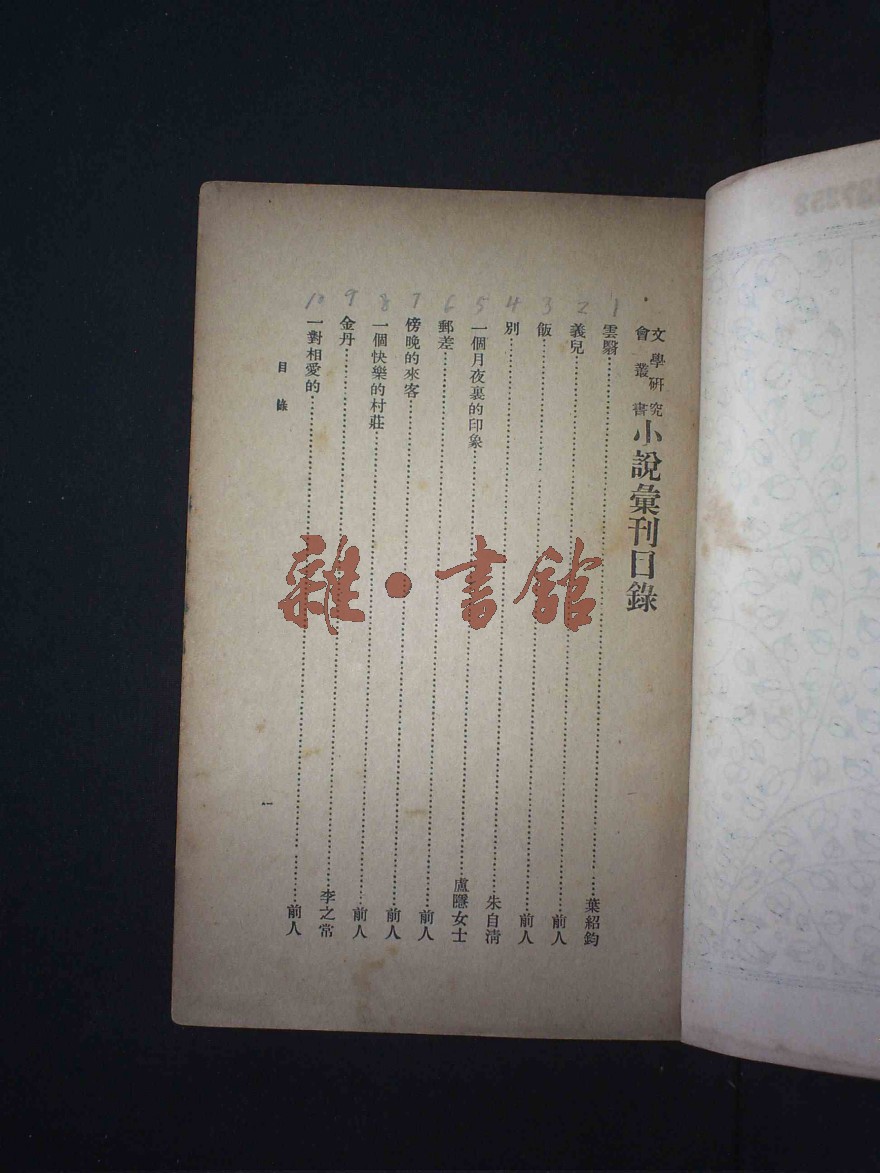 文學研究會叢書
小說彙刊目錄
1 雲翳……葉紹鈞
2 義兒……前人
3 飯……前人
4 別……朱自清
5 一個月夜裏的印象……盧隱女士
6 郵差……前人
7 傍晚的來客……前人
8 一個快樂的村莊……前人
9 金丹……李之常
10 一對相愛的……前人
目錄
一
雜·書館